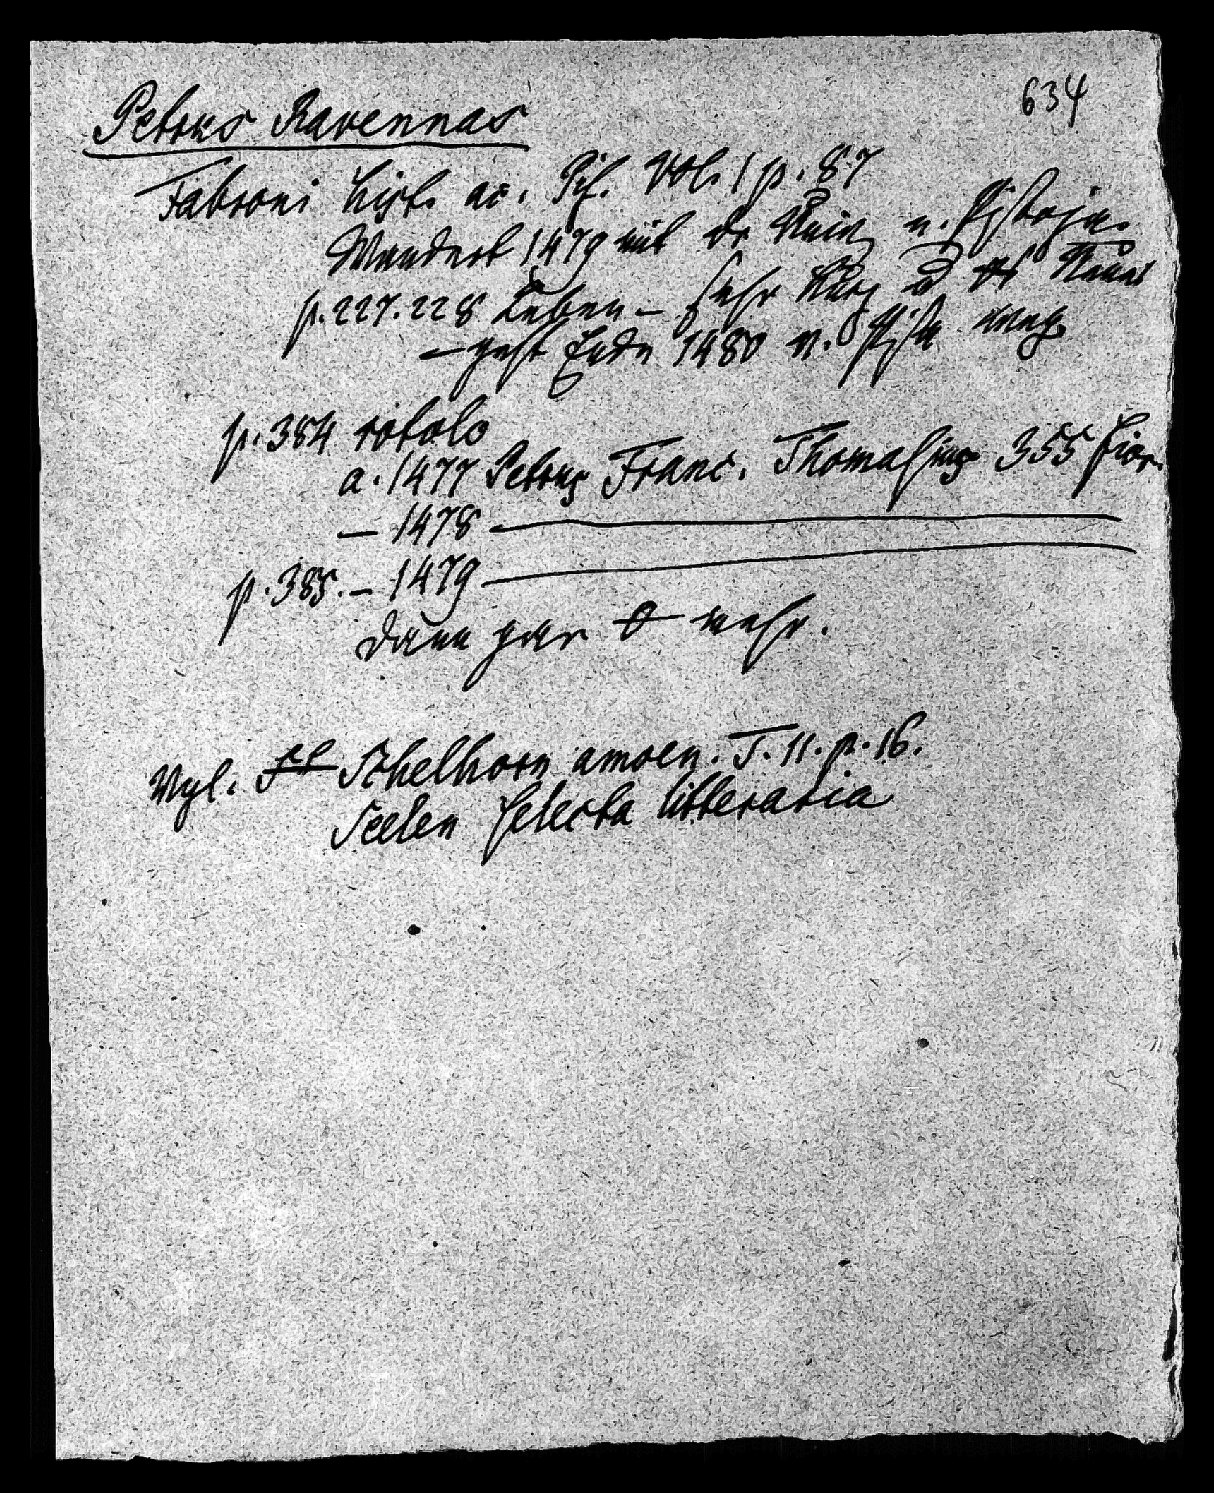 634
Petrus Ravennas
Fabroni hist. ac. Pis. Vol. 1 p. 87
Wandert 1479 mit der n. Pistoja.
p. 227. 228 Leben – sehr kurz
– geht Ende 1480 v. Pisa weg
p. 384 rotolo
a. 1477 Petrus Franc. Thomasius 355 fior.
– 1478 —
p. 385. – 1479 —
dann gar mehr.
Vgl. Schelhorn amoen. T. 11. p. 16.
Seelen selecta litteraria